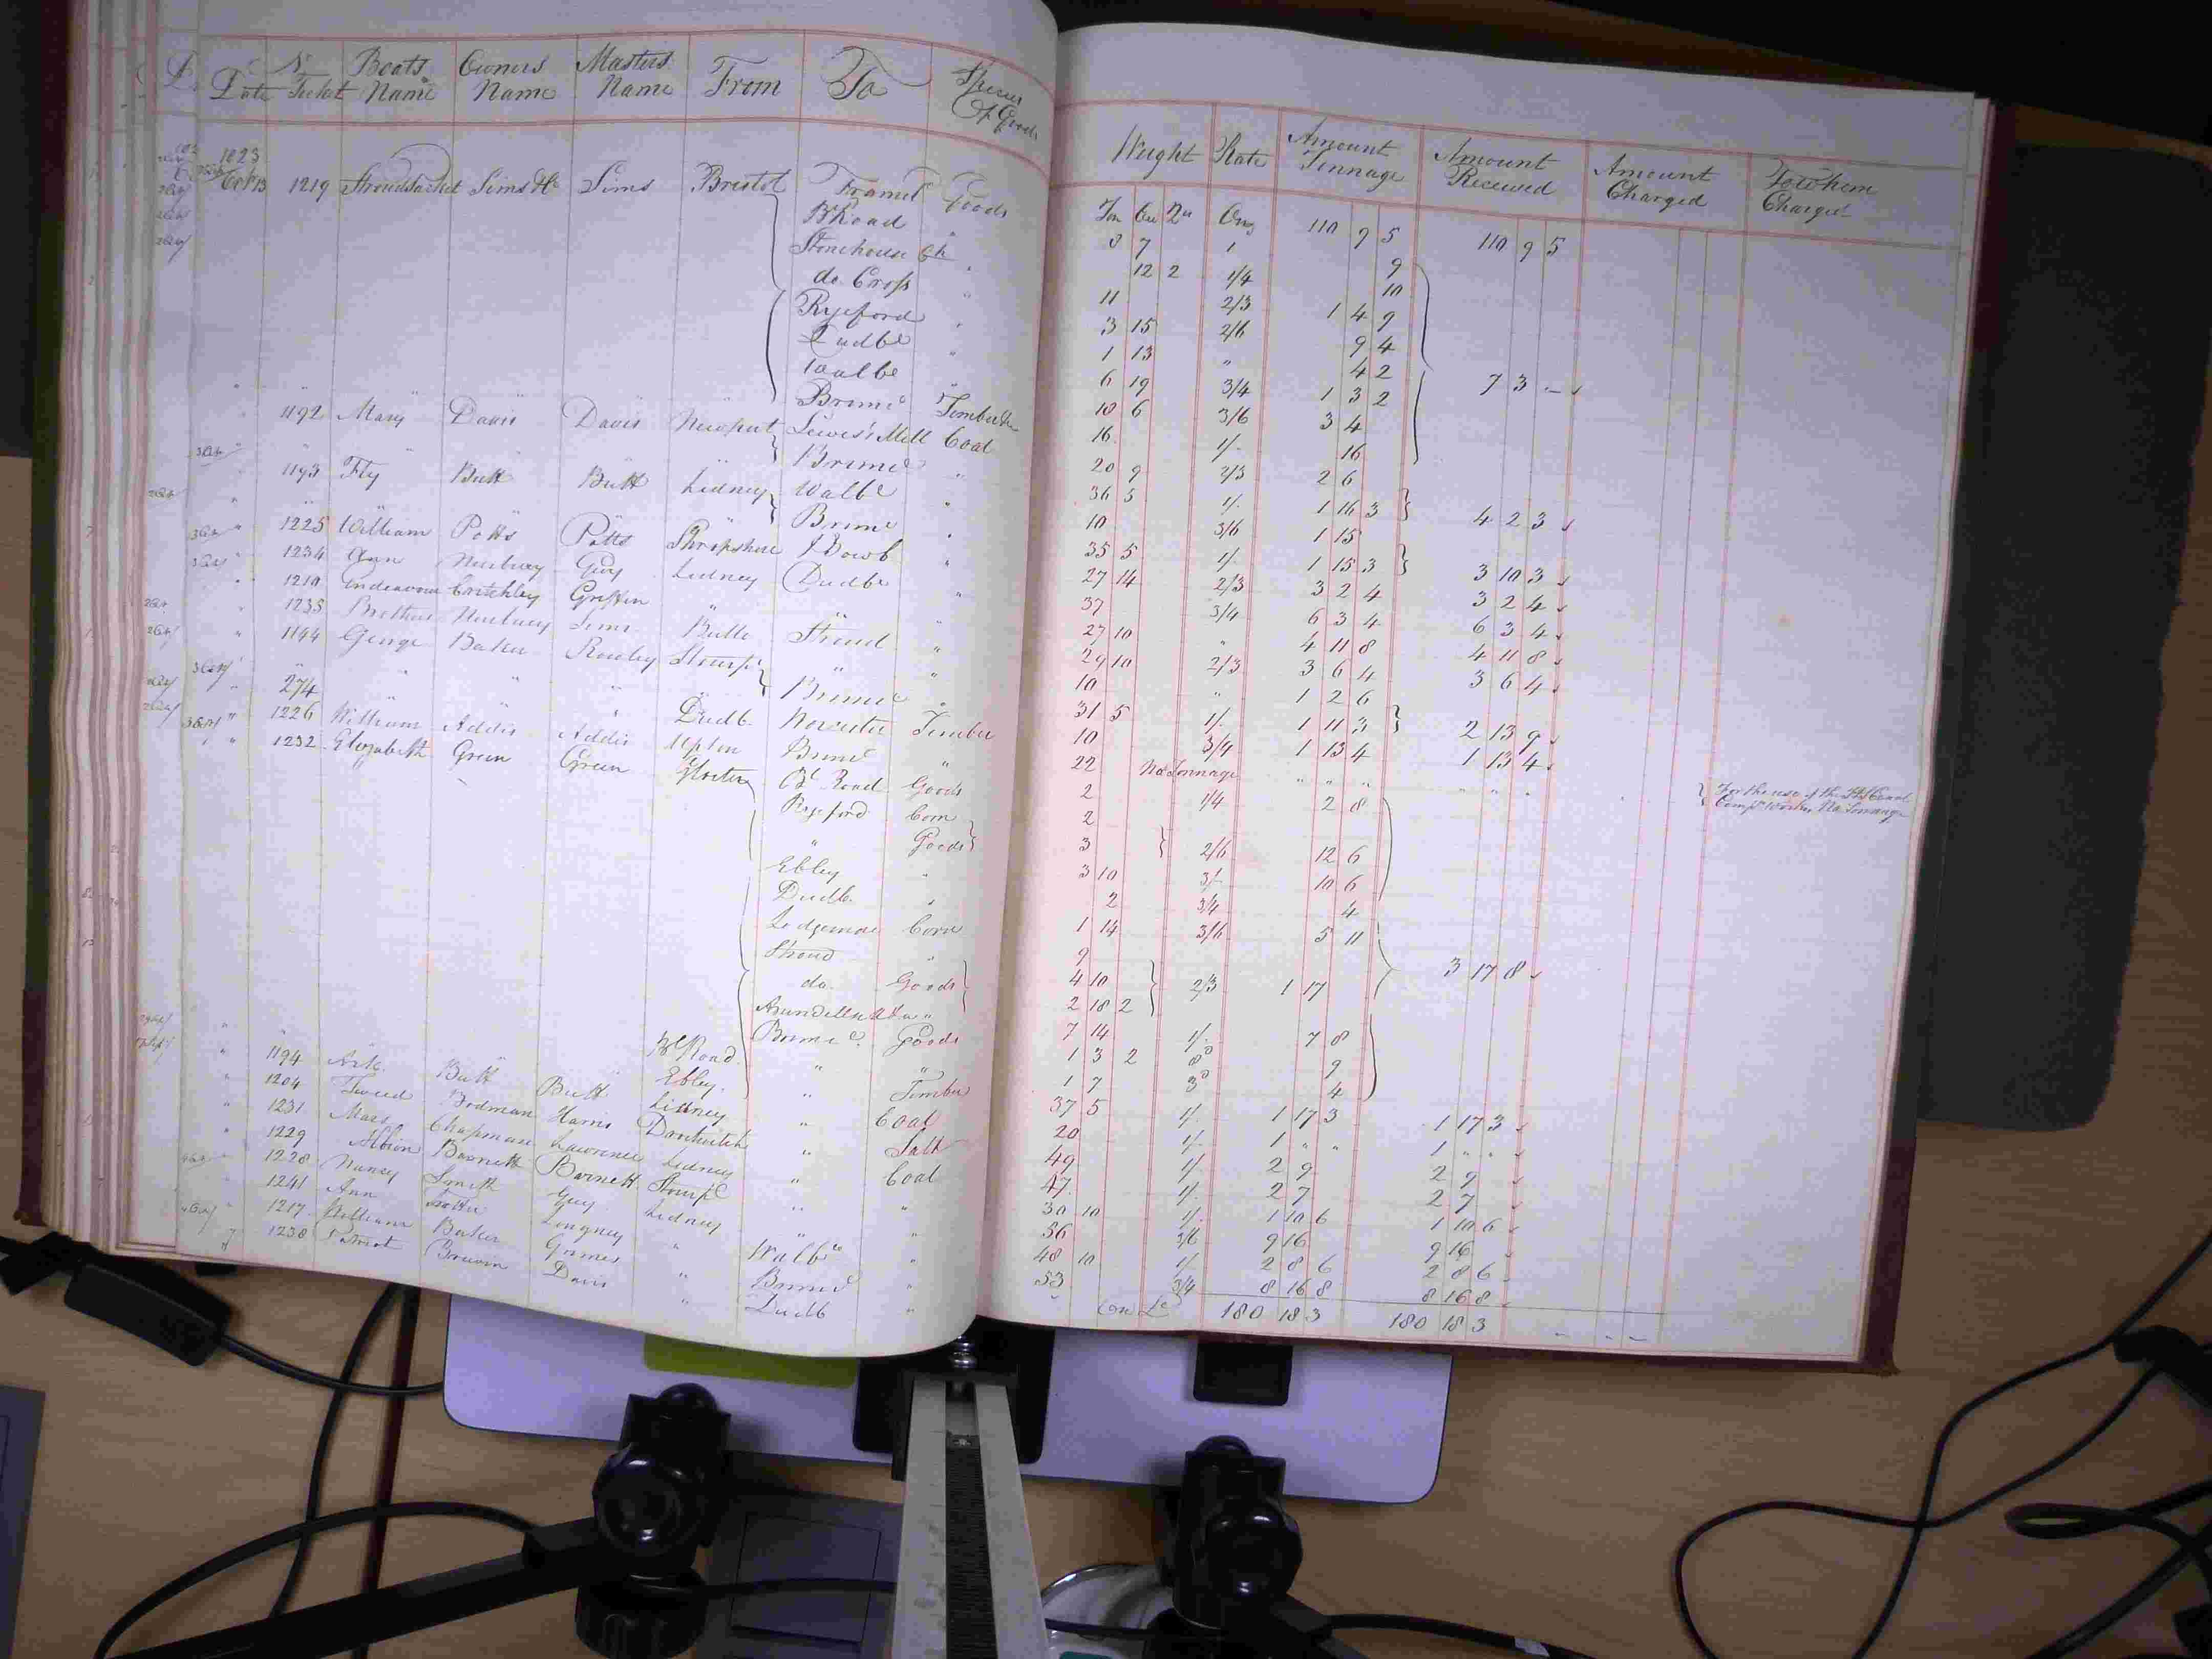 Date No Ticket Boats Name Owners Name Masters Name From To Species Of Goods Weight Rate Amount Tonnage Amount Received Amount Charged To whom Charged
Ton Cw Qu 110 9 5 110 9 5
1823
Oct 13 1219 Sims & Co Sims Bristol Framel Goods 8 7 1 9
B Road " 12 2 1/4 10
Stonehouse Ch " 11 2/3 1 4 9
do Cross " 3 15 2/6 9 4
Ryeford " 1 13 " 4 2
Dudbe " 6 19 3/4 1 3 2 7 3 -
Wallbe " 10 6 3/6 3 4
Brimd Timber 16 1/- 16
" 1192 Mary Davis Davis Newport Lewis's Mill Coal 20 9 2/3 2 6
Brimd " 36 5 1/- 1 16 3 4 2 3
" 1193 Fly Butt Butt Lidney Walbe " 10 3/6 1 15
Brimd " 35 5 1/- 1 15 3 3 10 3
" 1225 William Potts Potts Shropshire " 27 14 2/3 3 2 4 3 2 4
" 1234 Ann Guy Lidney Dudbe " 37 3/4 6 3 4 6 3 4
" 1210 Endeavour Critchley Griffin " " 27 10 " 4 11 8 4 11 8
" 1235 Brothers Sims Bullo Stroud " 29 10 2/3 3 6 4 3 6 4
" 1144 George Baker Rowley Stourpt " " 10 " 1 2 6
Brimd " 31 5 1/- 1 11 3 2 13 9
" 274 " " " Dudb Worcester Timber 10 3/4 1 13 4 1 13 4
" 1226 William Addis Addis Upton Brimd " 22 No Tonnage " " " " " " For the use of the Canal Compy Works No Tonnage
" 1232 Elizabeth Green Green Gloster Bl Road Goods 2 1/4 2 8
Ryeford Corn 2
" Goods 3 2/6 12 6
Ebley " 3 10 3/- 10 6
Dudb " 2 3/4 4
Corn 1 14 3/6 5 11
Stroud " 9 3 17 8
do Goods 4 10 2/3 1 17
Arundells " 2 18 2
Brimd Goods 7 14 1/- 7 8
Bl Road " " 1 3 2 8d 9
Ebley " Timber 1 7 3d 4
" 1194 Ark Butt Butt Lidney " Coal 37 5 1/- 1 17 3 1 17 3
" 1204 Tweed Bodman Harris Droitwitch " Salt 20 1/- 1 " " 1 " "
" 1231 Mars Chapman Lawrence Lidney " Coal 49 1/- 2 9 2 9
" 1229 Albion Barnett Barnett Stourpt " " 47 1/- 2 7 2 7
" 1228 Nancy Smith Guy Lidney " " 30 10 1/- 1 10 6 1 10 6
" 1241 Ann Longney " Walbe " 36 3/6 9 16 9 16
" 1217 William Baker Grimes " Brimd " 48 10 1/- 2 8 6 2 8 6
" 1238 Davis " Dudb " 53 3/4 8 16 8 8 16 8
180 18 3 180 18 3 - - -